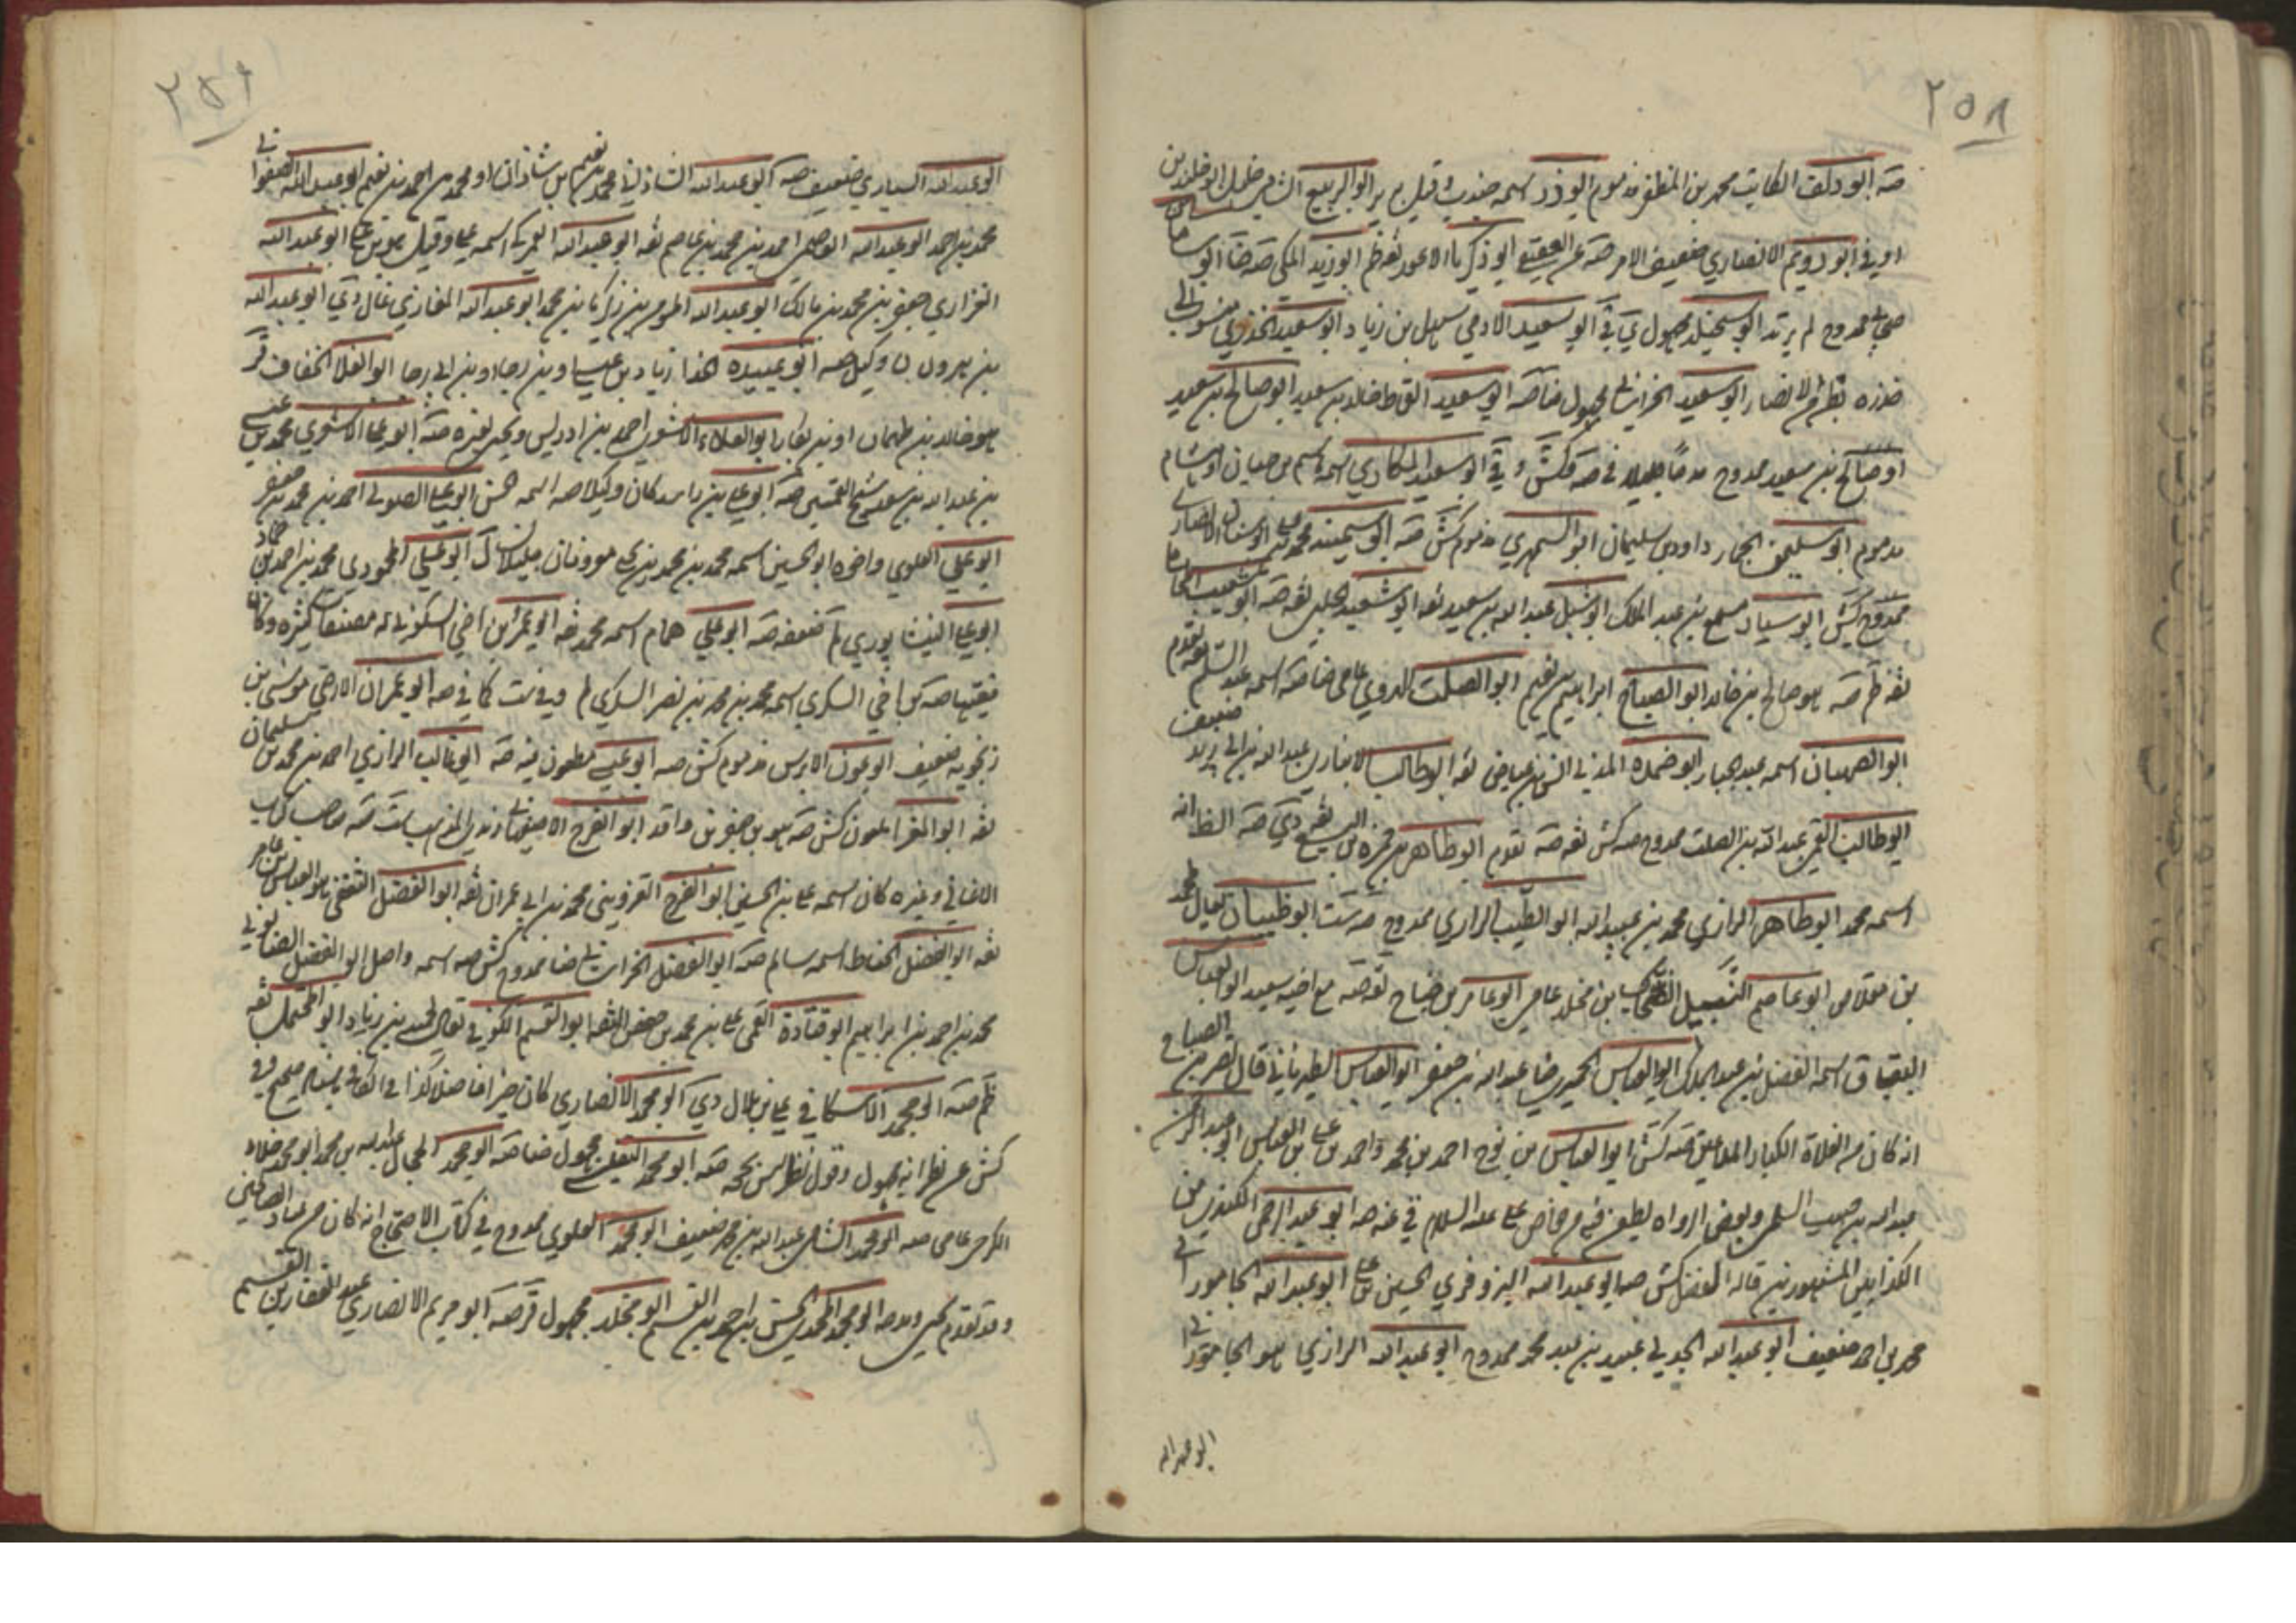 ٢٥٨
صه ابو دلف الكاتب محمد بن المظفر مذموم ابو ذر اسمه جندب وقيل برير ابو الربيع الشامي خليل ابو خلد بن
اوفى ابو رويم الانصاري ضعيف الامر صه عن العقيقي ابو زكريا الاعور ثقه ظم ابو زيد المكي صه ضا ابو ساسان
ممدوح لم يرتد ابو سعيد الادمي سهل بن زياد ابو سعيد الخدري
الانصار ابو سعيد الخراساني مجهول ضا صه ابو سعيد القماط خالد بن سعيد ابو صالح بن سعيد
او صالح بن سعيد ممدوح مدحا جليلا في صه وكش وفي ابو سعيد المكاري اسمه هاشم بن حيان او هشام
مذموم ابو سليمن الحمار داود بن سليمان ابو السمهري مذموم كش صه ابو سمينه محمد بن علي ابو سنان الانصاري
ممدوح كش ابو سيار مسمع بن عبد الملك ابو شبل عبد الله بن سعيد ثقه ابو شعبه الحلبي ثقه صه ابو شعيب المحاملي
ثقه ظم صه هو صالح بن خالد ابو الصباح ابراهيم بن نعيم ابو الصلت الهروي عامي ضا صه اسمه عبد السلم تقدم
ابو الصهبان اسمه عبد الجبار ابو ضمره المدني انس بن عياض ثقه ابو طالب الانباري عبد الله بن ابي زيد ضعيف
ابو طالب القمي عبد الله بن الصلت ممدوح صه كش ثقه صه تقدم ابو طاهر بن حمزه بن اليسع ثقه دي صه الظ انه
اسمه محمد ابو طاهر الرازي محمد بن عبيد الله ابو الطيب الرازي ممدوح صه ست ابو ظبيان
بن مقلاص ابو عاصم النبيل الضحاك بن مخلد عامي ابو عامر بن جناح ثقه صه مع اخيه سعيد ابو العباس
البقباق اسمه الفضل بن عبد الملك ابو العباس الحميري عبد الله بن جعفر ابو العباس الطبرناني قال نصر بن الصباح
انه كان من الغلاة الكبار الملاعين صه كش ابو العباس بن نوح احمد بن محمد واحمد بن علي بن العباس ابو عبد الرحمن
عبد الله بن حبيب السلمي وبعض الرواه يطعن فيه من خواص علي عليه السلام في غه صه ابو عبد الرحمن الكندي من
الكذابين المشهورين قاله الفضل كش صه ابو عبد الله البزوفري الحسين بن علي ابو عبد الله الجاموراني
محمد بن احمد ضعيف ابو عبد الله الجدلي عبيد بن عبد محمد ممدوح ابو عبد الله الرازي هو الجاموراني
ابو عبد الله
٢٥٩
ابو عبد الله السياري ضعيف صه ابو عبد الله الشاذاني محمد بن نعيم بن شاذان او محمد بن احمد بن نعيم ابو عبد الله الصفواني
محمد بن احمد ابو عبد الله العاصمي احمد بن محمد بن عاصم ثقه ابو عبد الله العمركي اسمه علي وقيل هو بن علي ابو عبد الله
الفزاري جعفر بن محمد بن مالك ابو عبد الله بن زكريا بن محمد ابو عبد الله المغازي غال دي ابو عبد الله
بن هرون وكيل صه ابو عبيده الحذا زياد بن عيسى او بن رجا او بن ابي رجا ابو العلا الخفاف قر
هو خالد بن طهمان او بن بكار ابو العلاء الاشعري احمد بن ادريس وتحي لغيره صه ابو علي الاشعري محمد بن عيسى
بن عبد الله بن سعد شيخ القميين صه ابو علي بن راشد كان وكيلا صه اسمه حسن ابو علي الصولي احمد بن محمد بن جعفر
ابو علي العلوي واخوه ابو الحسين اسمه محمد بن محمد بن يحيى معروفان جليلان ابو علي المحمودي محمد بن احمد بن حماد
ابو علي النيشابوري ضعفه صه ابو علي همام اسمه محمد ثقه ابو عمر ابن اخي السكوني له مصنفات كثيره وكان
فقيها صه بن اخي السكري اسمه محمد بن محمد بن نصر السكري لم وفي ست كما في صه ابو عمران الارمني موسى بن
زنجويه ضعيف ابو عون الابرش مذموم كش صه ابو عيسى مطعون فيه صه ابو غالب الرازي احمد بن محمد بن سليمان
ثقه ابو الغمر ملعون كش صه هو بن جعفر بن واقد ابو الفرج الاصفهاني زيدي المذهب ست صه صاحب كتاب
الاغاني وغيره كان اسمه علي بن الحسين ابو الفرج القزويني محمد بن ابي عمران ثقه ابو الفضل الثقفي هو العباس بن عامر
ثقه ابو الفضل الحناط اسمه سالم صه ابو الفضل الخراساني ضا ممدوح كش صه اسمه واصل ابو الفضل الصابوني
محمد بن احمد بن ابراهيم ابو قتادة القمي علي بن محمد بن حفص الثقه ابو القسم الكوفي حميد بن زياد ابو المحتمل ثقه
ظم صه ابو محمد الاسكافي علي بن بلال دي ابو محمد الانصاري كان خيرا فاضلا كذا في الكافي بسند صحيح وفي
كش عن نظرائه مجهول وقول نظر ليس بحجه صه ابو محمد التفليسي مجهول ضا صه ابو محمد الحجال عبد الله بن محمد ابو محمد خلاد
الكرخي عامي صه ابو محمد الشامي عبد الله بن محمد ضعيف ابو محمد العلوي ممدوح في كتاب الاحتجاج انه كان من عباد الصالحين
وقد تقدم ابو محمد المحمدي الحسن بن احمد بن القسم ابو مخلد مجهول قر صه ابو مريم الانصاري عبد الغفار بن القسم